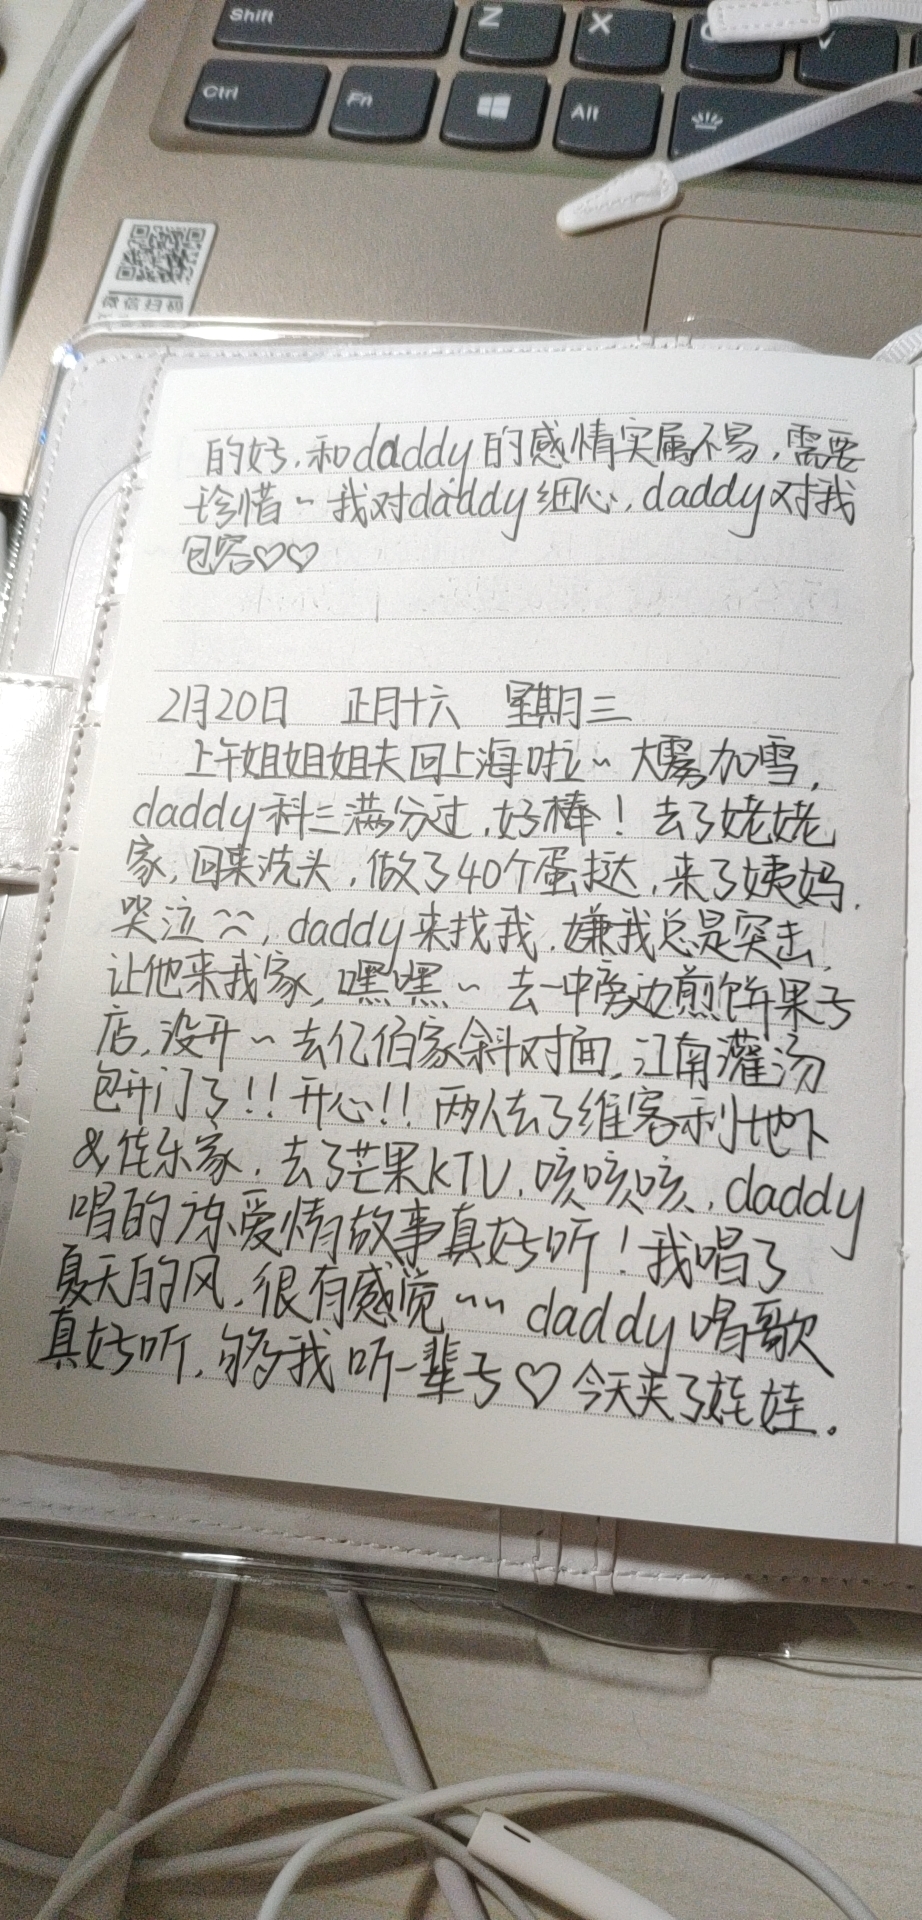 Shift
Z
X
Ctrl
Fn
Alt
微信扫码
的好,和daddy的感情实属不易,需要
珍惜~我对daddy细心,daddy对我
包容♡♡
2月20日 正月十六 星期三
上午姐姐姐夫回上海啦~大雾加雪,
daddy科三满分过,好棒!去了姥姥
家,回来洗头,做了40个蛋挞,来了姨妈.
哭泣^^,daddy来找我.嫌我总是突击,
让他来我家,嘿嘿~去一中旁边煎饼果子
店,没开~去亿佰家斜对面,江南灌汤
包开门了!!开心!!两人去了维客利地下
&佳乐家,去了芒果KTV,咳咳咳,daddy
唱的凉爱情故事真好听!我唱了
夏天的风,很有感觉~~daddy唱歌
真好听,够我听一辈子♡今天夹了娃娃.